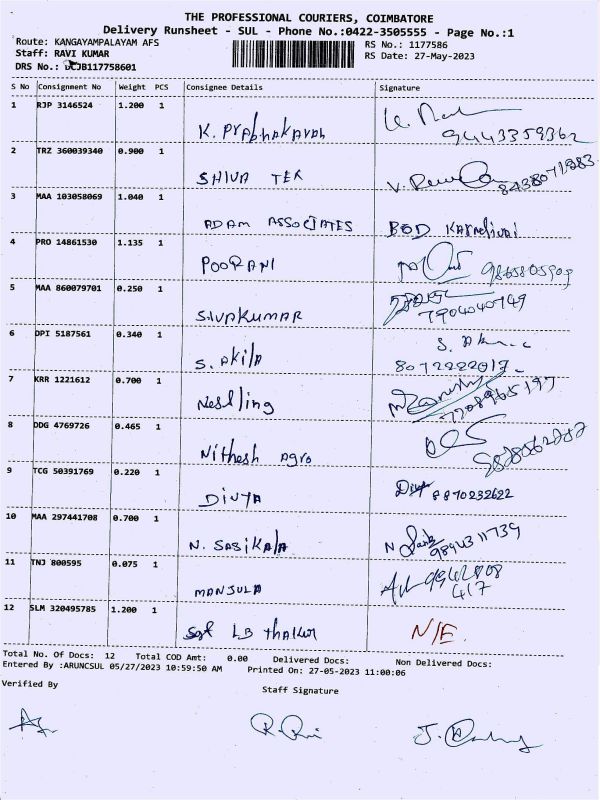 THE PROFESSIONAL COURIERS, COIMBATORE
Delivery Runsheet - SUL - Phone No.:0422-3505555 - Page No.:1
Route: KANGAYAMPALAYAM AFS
RS No.: 1177586
Staff: RAVI KUMAR
RS Date: 27-May-2023
DRS No.: DCJB117758601
S No Consignment No Weight PCS Consignee Details Signature
1 RJP 3146524 1.200 1
K. Prabhakaran 9443359362
2 TRZ 360039340 0.900 1
SHIVA TEK 8438071983
3 MAA 103058069 1.040 1
ADAM ASSOCIATES BOD
4 PRO 14861530 1.135 1
POORANI
5 MAA 860079701 0.250 1
SIVAKUMAR 7904040749
6 DPI 5187561 0.340 1
S. Akila 8072222017
7 KRR 1221612 0.700 1
Nestling 7708965197
8 DDG 4769726 0.465 1
Nithesh Agro
9 TCG 50391769 0.220 1
DIVYA Divya 8870232622
10 MAA 297441708 0.700 1
N. SASIKALA 9894311739
11 TNJ 800595 0.075 1
MANJULA 417
12 SLM 320495785 1.200 1
Sgt LB Thaker N/E.
Total No. Of Docs: 12 Total COD Amt: 0.00 Delivered Docs: Non Delivered Docs:
Entered By :ARUNCSUL 05/27/2023 10:59:50 AM Printed On: 27-05-2023 11:00:06
Verified By
Staff Signature